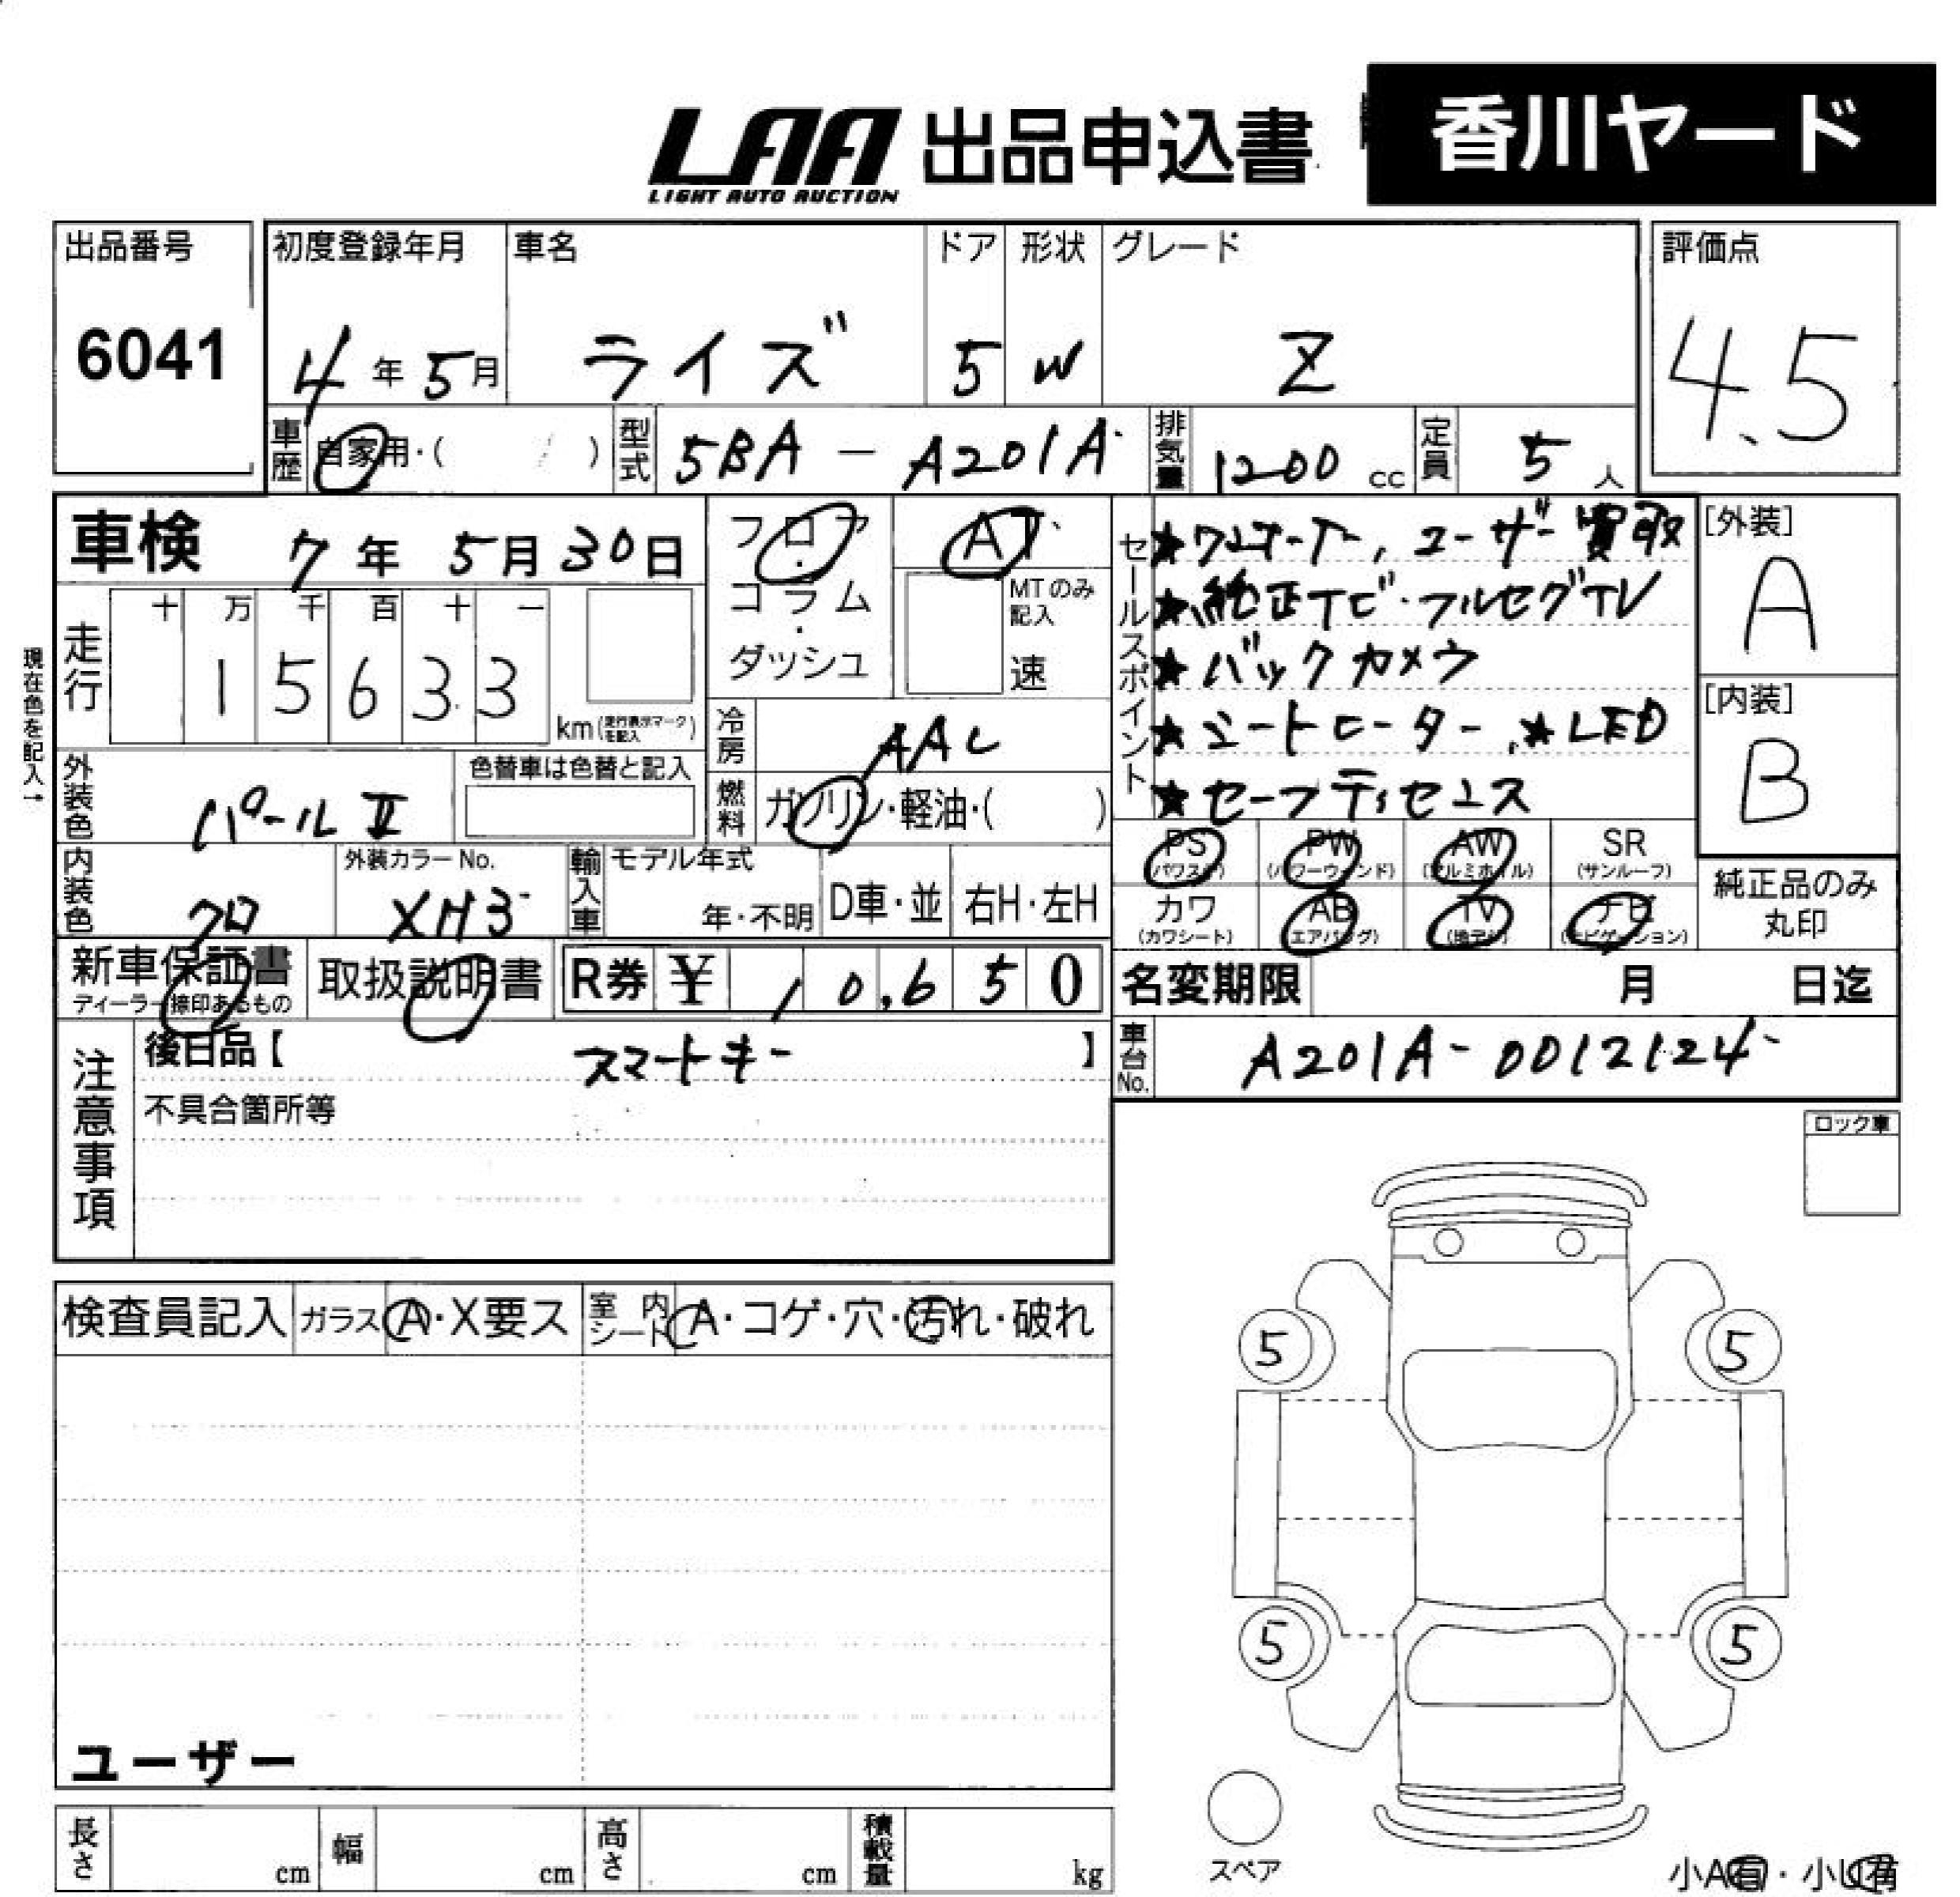 LAA 出品申込書 香川ヤード
LIGHT AUTO AUCTION
出品番号 初度登録年月 車名 ドア 形状 グレード 評価点
6041 4年5月 ライズ 5 W Z 4.5
車歴 自家用・( ) 型式 5BA-A201A 排気量 1200cc 定員 5人
車検 7年5月30日 フロア・コラム・ダッシュ AT
MTのみ記入 速
セールスポイント
★ワンオーナー, ユーザー買取
★純正ナビ・フルセグTV
★バックカメラ
★シートヒーター, ★LED
★セーフティセンス
[外装]
A
[内装]
B
現在色を記入→
走行 十 万 千 百 十 一
1 5 6 3 3 km(走行表示マークを記入)
冷房 AAC
外装色 パールⅡ 色替車は色替と記入
燃料 ガソリン・軽油・( )
PS PW AW SR
(パワステ) (パワーウインド) (アルミホイル) (サンルーフ)
カワ AB TV ナビ
(カワシート) (エアバッグ) (地デジ) (ナビゲーション)
純正品のみ
丸印
内装色 クロ 外装カラーNo. XH3 輸入車 モデル年式 年・不明 D車・並 右H・左H
新車保証書 取扱説明書 R券 ¥ 10,650
ディーラー捺印あるもの
名変期限 月 日迄
車台No. A201A-0012124
注意事項 後日品【 スマートキー 】
不具合箇所等
ロック車
検査員記入 ガラス A・X要ス 室内シート A・コゲ・穴・汚れ・破れ
5 5
5 5
ユーザー
長さ cm 幅 cm 高さ cm 積載量 kg
スペア
小A有・小U有